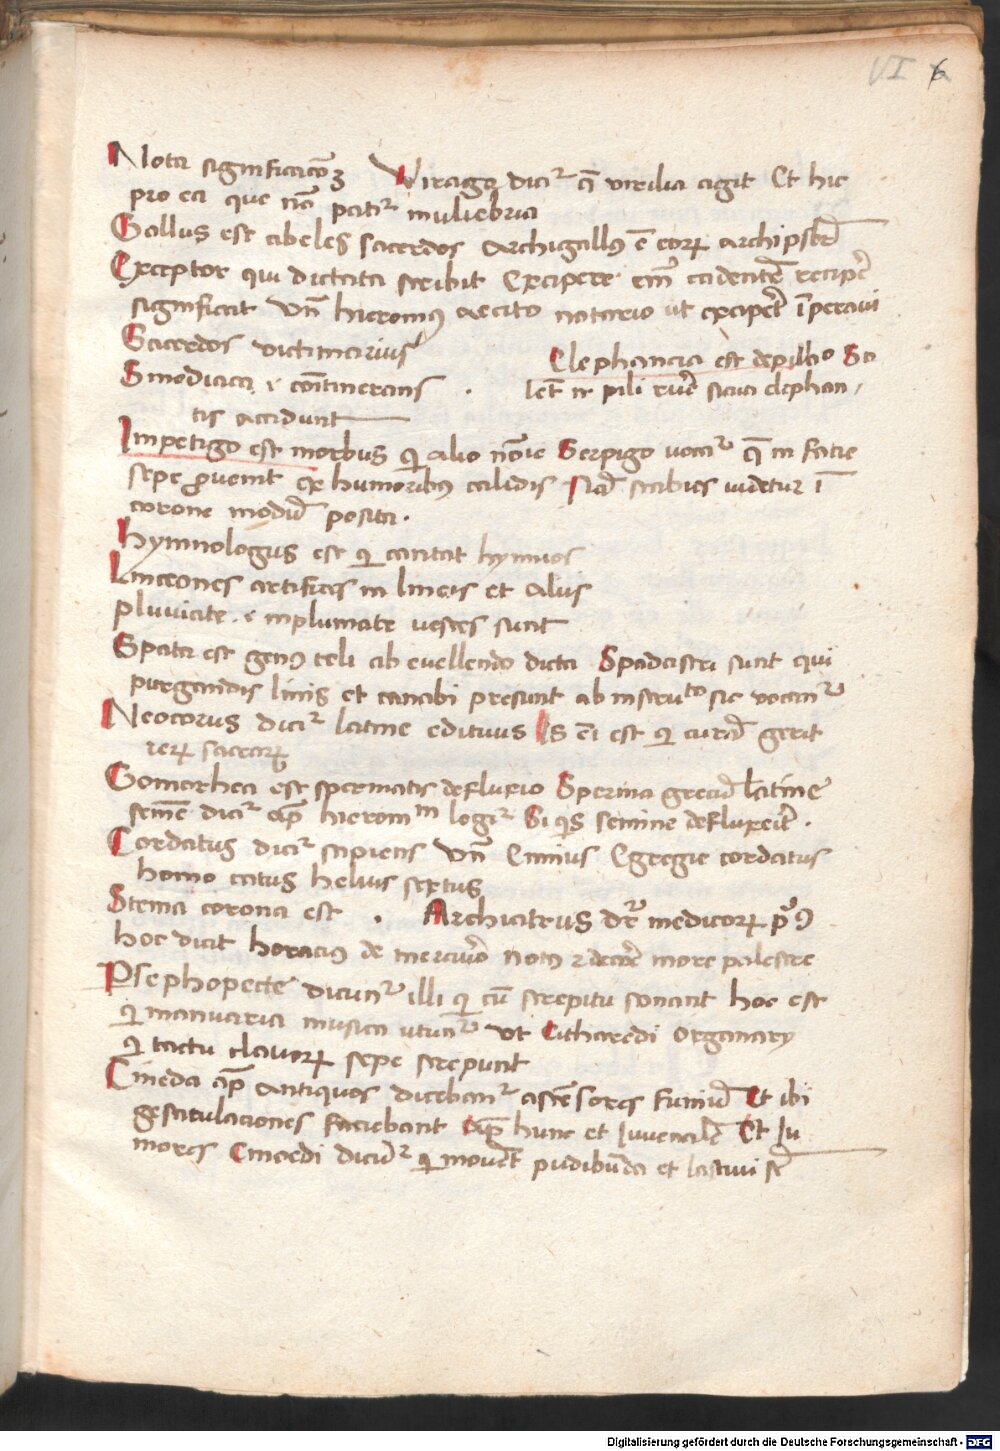 VI 6
Nota significacōꝫ Virago dicit᷑ cū virilia agit Et hic
pro ea que nō patit᷑ muliebria
Gallus est cibeles sacerdos Archigallꝰ ē eorꝝ archipsbr̄
Exceptor qui dictata scribit Excipere em̄ cadentē reciper̄
significat Vn̄ hieronimꝰ accito notario ut exciper̄t īperavi
Sacerdos victimarius
Elephancia est depillo Sca
Smodiaca .i. cōtinerans .
let n̄ pili ruūt sicut elephan
tis accidunt
Impetigo est morbus qi alio nōie Serpigo vocat᷑ q̄ in facie
sepe ꝓvenit ex humoribus calidis Siccad scabies videtur ī
corone modum posita .
Hymnologus est qi cantat hymnos
Linteones artifices in lineis et aliis
pluvicate .i. inplumate vestes sunt
Spata est genꝰ teli ab evellendo dicta Spadastri sunt qui
purgandis linis et canabi presunt ab instruto sic vocant᷑
Neocorus dicit᷑ latine edituus Is em̄ est qi curam gerit
rerꝝ sacrarꝝ
Gomorhea est spermatis defluxio Sperma grecum latine
semē dicit᷑ apd hieronm logit᷑ Si qis semine defluxerit .
Cordatus dicit᷑ sapiens Vn̄ Ennius Egregie cordatus
homo catus helius sextus
Stema corona est . Archiatrus dr̄ medicorꝝ pͥꝰ
hoc dicit horacius de mercurio notꝰ et decore more palestre
Psephopecte dicunt᷑ illi qi cū strepitu sonant hoc est
qi manuaria musica utunt᷑ ut Citharedi organary
qi tactu clavorꝝ sepe strepunt
Cineda apd antiquos dicebant᷑ ascēsores funium Et ibi
gesticulationes faciebant apd hunc et Juvenalē Et Ju
mores Cinaedi dicunt᷑ qi movent pudibunda et lascivi st̄
Digitalisierung gefördert durch die Deutsche Forschungsgemeinschaft - DFG